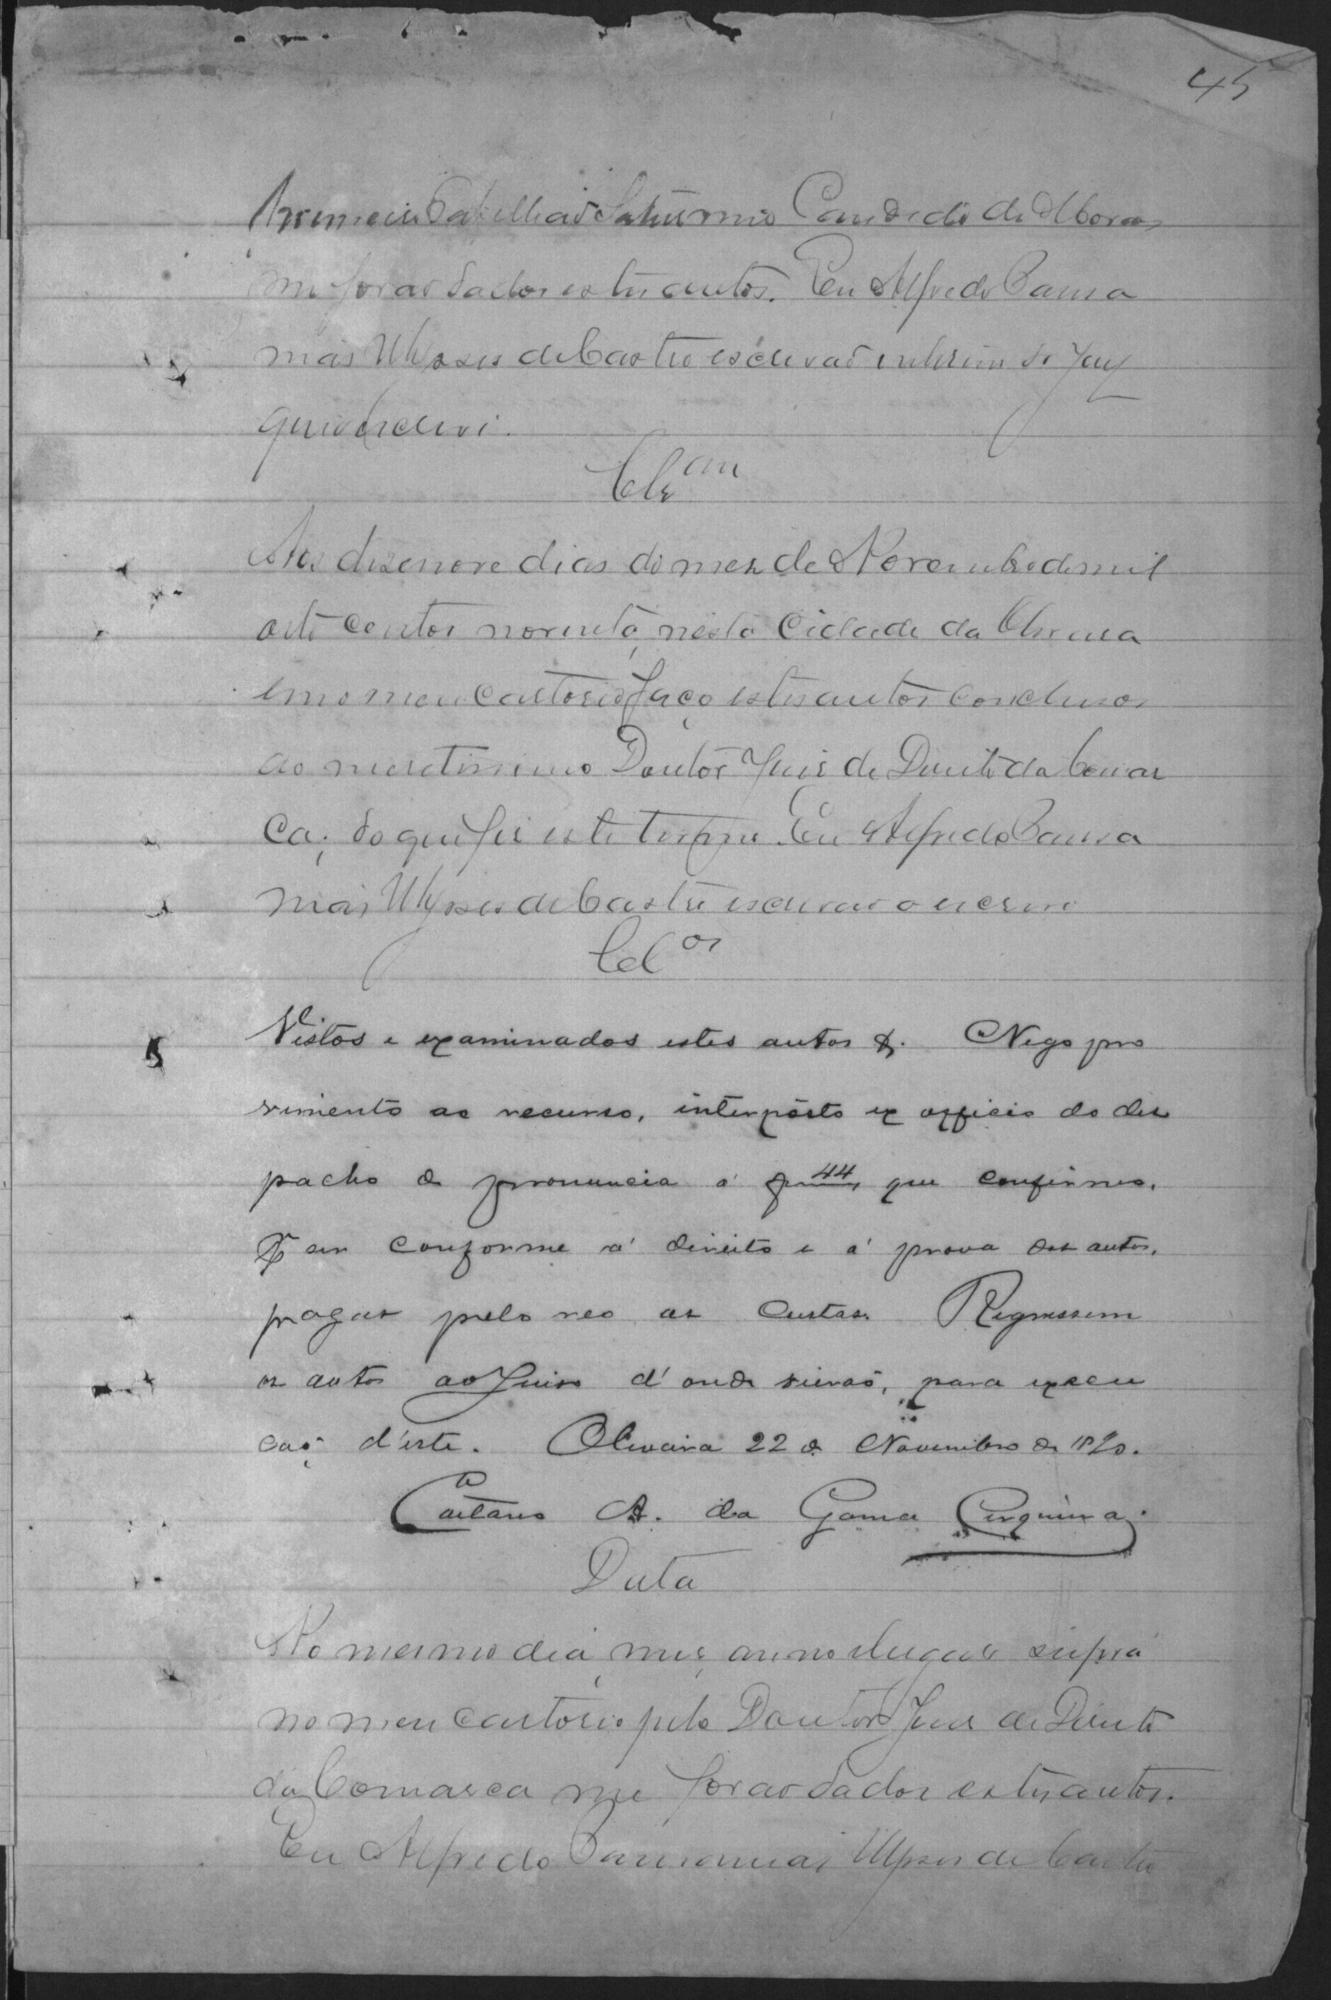 45
Primeiro Tabelliaõ Saturnino Candido de Moraes
me foraõ dados estes autos. Eu Alfredo Parra
mais Ulysses de Castro escrivaõ interino do Jury
que o escrevi.
Cls.am
Aos desenove dias do mez de Novembro de mil
oito centos noventa, nesta Cidade da Oliveira
em o meu cartorio faço estes autos conclusos
ao meretissimo Doutor Juiz de Direito da Comar
ca; do que fiz este termo. Eu Alfredo Parra
mais Ulysses de Castro escrivaõ o escrevi
Cl.os
Vistos e examinados estes autos &. Nego pro
vimento ao recurso, interposto ex officio do des
pacho de pronuncia á f 44, que confirmo,
por ser conforme á direito e á prova dos autos,
pagas pelo reo as custas. Regressem
os autos ao Juiso d'onde vieraõ, para execu
çaõ d'este. Oliveira 22 de Novembro de 1890.
Caetano A. da Gama Cerqueira.
Data
No mesmo dia, mez, anno e lugar supra
no meu cartorio pelo Doutor Juiz de Direito
da Comarca me foraõ dados estes autos.
Eu Alfredo Ulysses de Castro